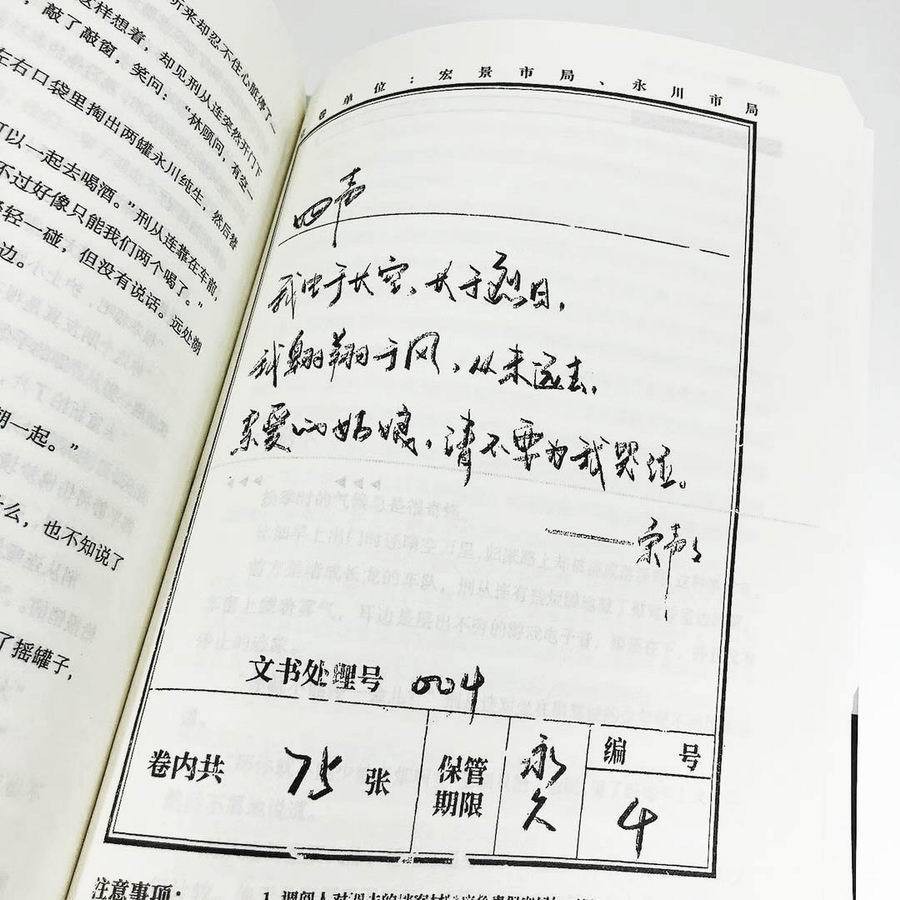 听来却忍不住心脏停了一
这样想着，却见刑从连突然开门下
，敲了敲窗，笑问：“林顾问，有空一
左右口袋里掏出两罐永川纯生，然后
可以一起去喝酒。”刑从连靠在车前，
不过好像只能我们两个喝了。”
轻一碰，但没有说话。远处
边。
一起。”
什么，也不知说了
了摇罐子，
卷单位：宏景市局、永川市局
四声
我生于长空、长于烈日，
我翱翔于风、从未远去，
亲爱的姑娘，请不要为我哭泣。
——宋声声
文书处理号 004
卷内共 75 张 保管期限 永久 编号 4
注意事项：